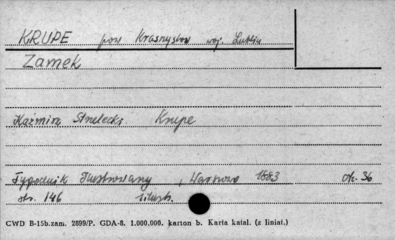 KRUPE pow Krasnystaw woj. Lublin
Zamek
Kazmirz Strelecki Krupe
Tygodnik Ilustrowany, Warszawa 1883 Nr. 36
str. 146 1 ilustr.
CWD B-15b. zam. 2899/P. GDA-8. 1.000.000. karton b. Karta katal. (z liniat.)